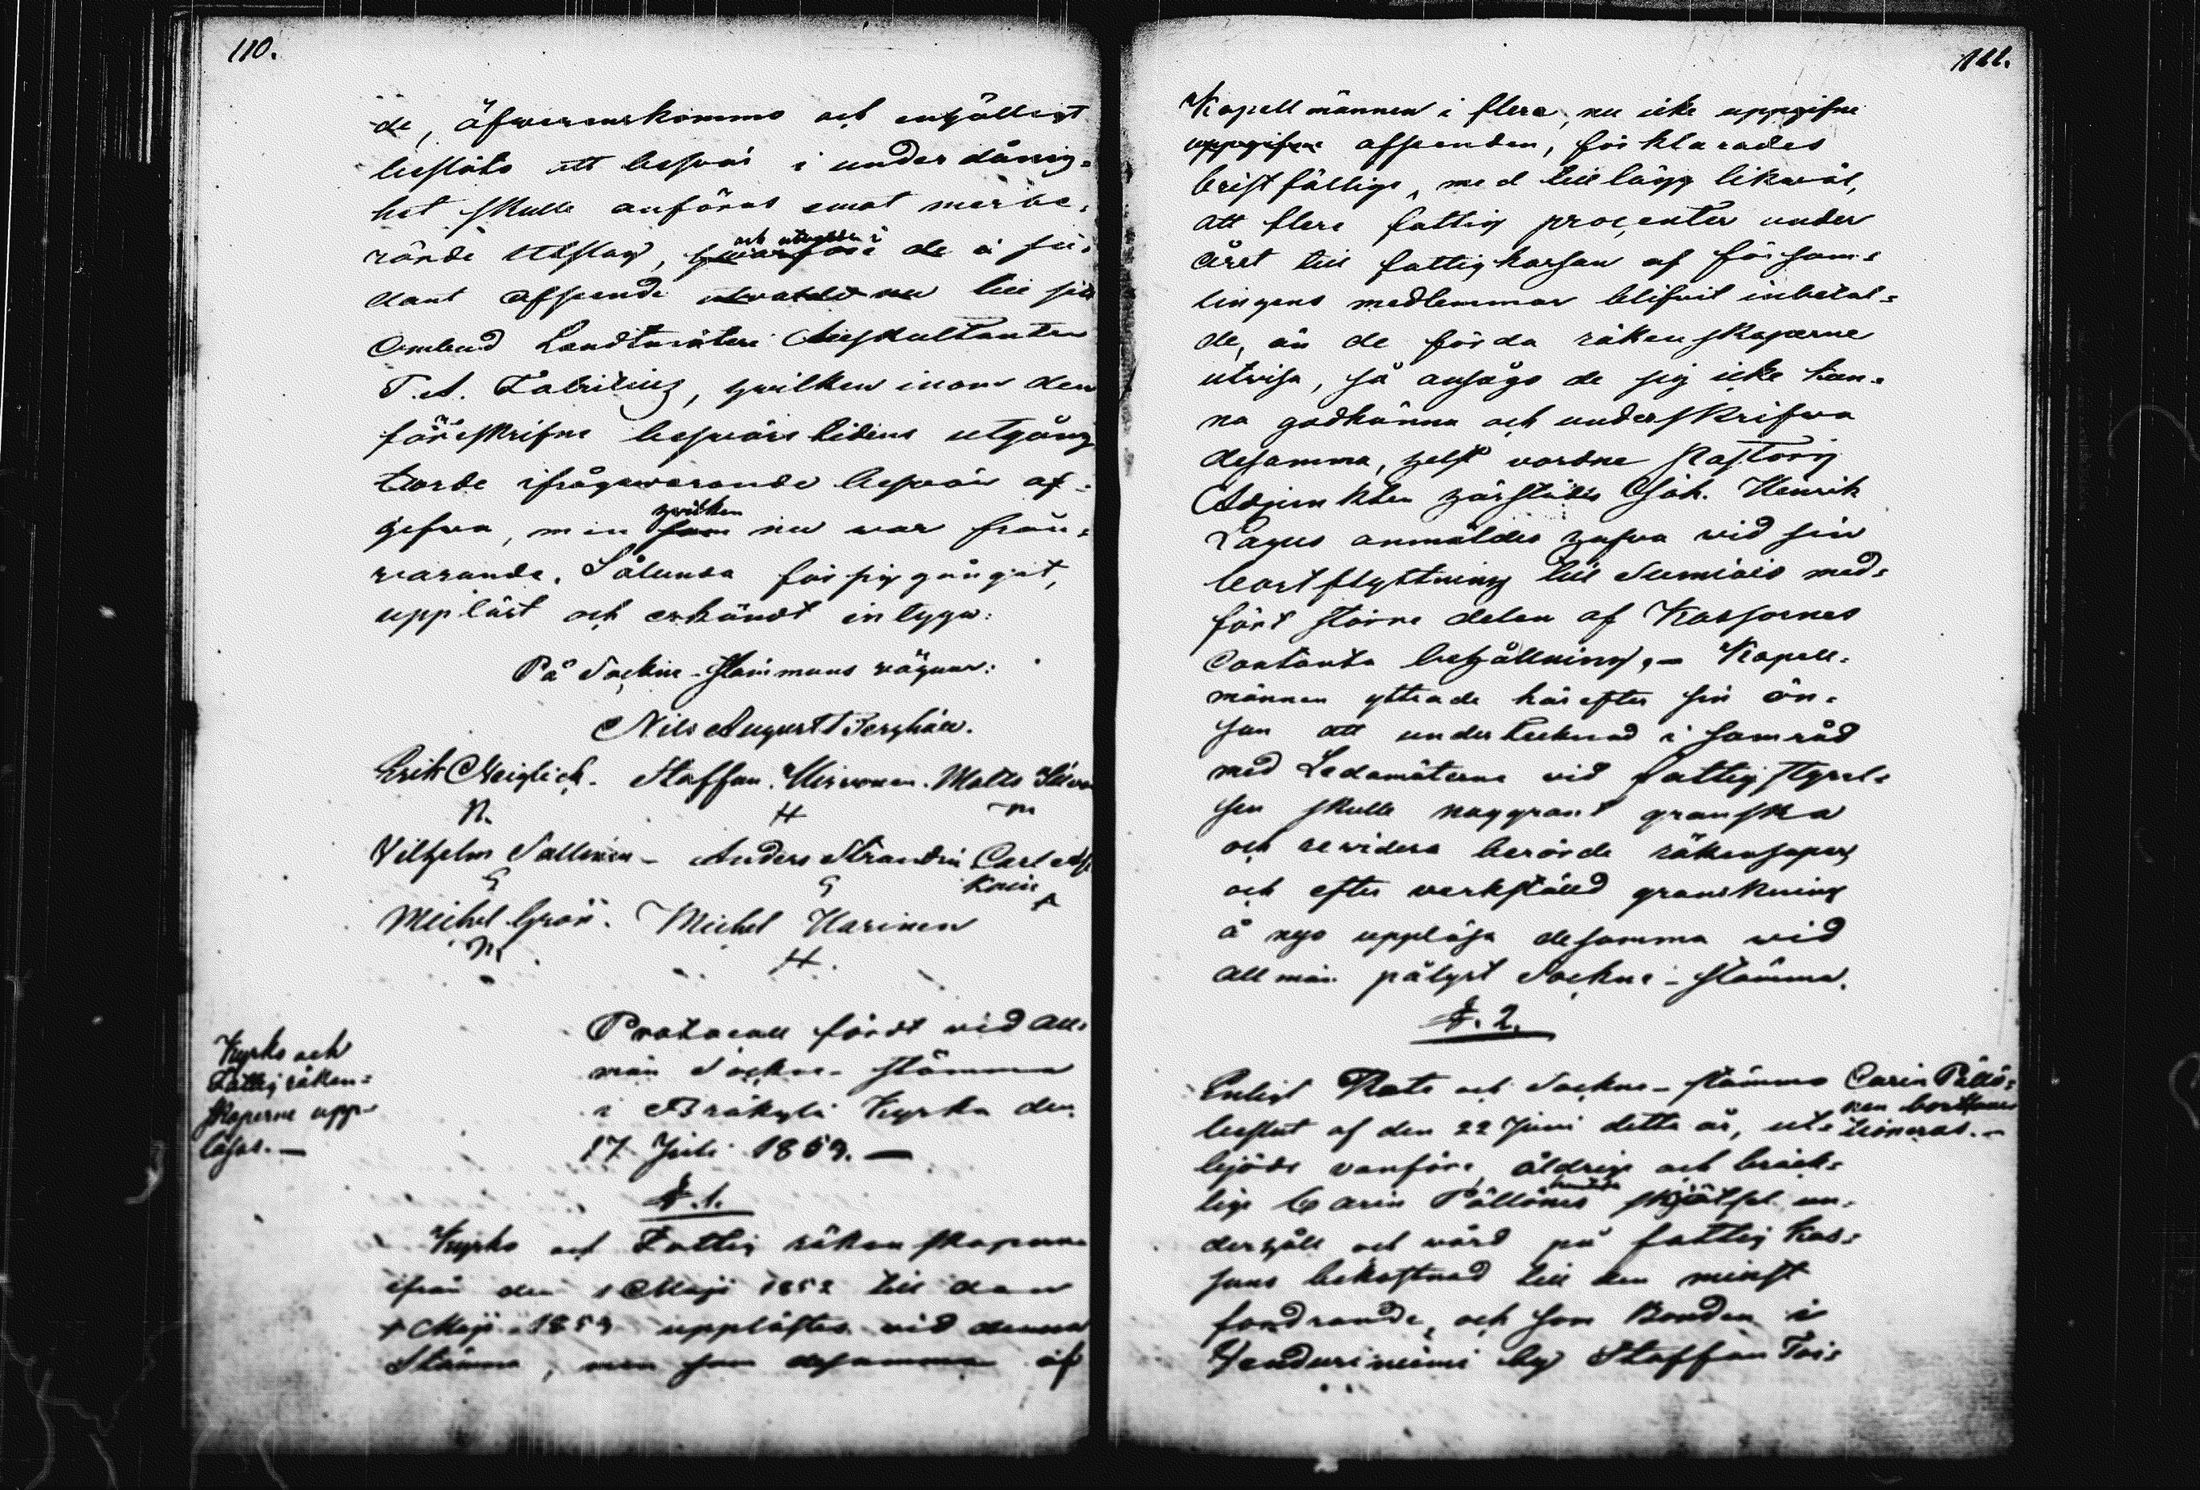 110.
de, öfverenskommo och enhälligt
beslöto att besvär i underdånig-
het skulle anföras emot merbe-
rörde Utslag, hwarföre de i så-
och utsedde i
dant afseende utvalde nu till sin
Ombud Landtmäteri Auskultanten
T. A. Fabritius, hwilken inom den
föreskrifne besvärs tidens utgång
borde ifrågavarande besvär af-
gifwa, men som nu war från-
hwilken
varande. Sålunda försiggånget,
uppläst och erkändt intyga:
På Sockne-Stämmans vägnar:
Nils August Berghäll.
Erik Neiglick. Staffan Hirvonen. Matts
N. H m
Vilhelm Sallinen - Anders Strandin Carl
Michel Grön. Michel Harinen
H
Kyrko och
Fattig räken-
skaperne upp-
läsas. -
Protocoll fördt vid all-
män Sockne-stämma
i Bräkylä Kyrka den
17 Juli 1859. -
§. 1.
Kyrko och Fattig räkenskaperne
ifrån den 1 Maji 1852 till den
1 Maji 1859 upplästes vid denna
Stämma, men som desamma af
111.
Kapellmännen i flere, nu icke uppgifne
uppgifne afseenden, förklarades
bristfällige, med tillägg likwäl,
att flere fattig procenter under
året till fattigkassan af försam-
lingens medlemmar blifvit inbetal-
de, än de förda räkenskaperne
utvisa, så ansågo de sig icke kun-
na godkänna och underskrifva
desamma, helst vordne Pastors
Adjunkten härstädes Joh. Henrik
Lagus anmäldes hafva vid sin
bortflyttning till Sumiais med-
fört större delen af Kassornes
Contanta behållning, - Kapell-
männen yttrade härefter sin ön-
skan att undertecknad i samråd
med Ledamöterne vid fattigstyrel-
sen skulle noggrant granska
och revidera berörde räkenskaper
och efter verkställd granskning
å nyo uppläsa desamma vid
allmän pålyst Sockne-stämma.
§. 2.
Enligt Råte och Sockne-stämmo
beslut af den 22 Juni detta år, ut-
bjöds vanföre, åldrige och bräck-
lige Carin Pällönens skjötsel un-
derhåll och vård på fattig Kas-
sans bekostnad till den minst
fordrande, och som Bonden i
Venduriniemi by Staffan Toi-
Carin Pällö-
nen bort auc-
tioneras. -